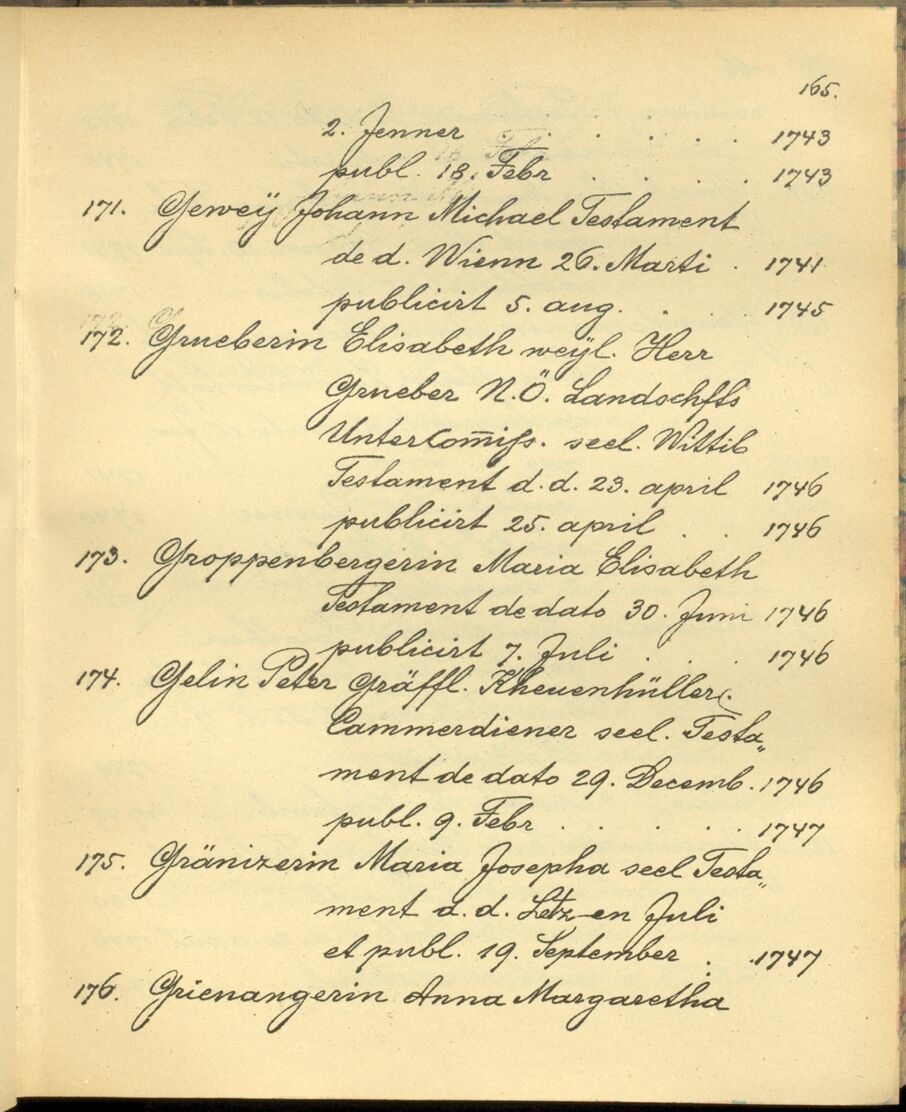 165.
2. Jenner . . . . . 1743
publ. 18. Febr . . . . 1743
171. Gewey Johann Michael Testament
de d. Wienn 26. Marti . 1741
publicirt 5. aug. . . 1745
172. Grueberin Elisabeth weÿl. Herr
Grueber N.Ö. Landschfts
Untercom̅iss. seel. Wittib
Testament d. d. 23. april 1746
publicirt 25. april . . 1746
173. Groppenbergerin Maria Elisabeth
Testament de dato 30. Juni 1746
publicirt 7. Juli . . . 1746
174. Gelin Peter Gräffl. Kheuenhüller.
Cammerdiener seel. Testa„
ment de dato 29. Decemb. 1746
publ. 9. Febr . . . . . 1747
175. Gränizerin Maria Josepha seel Testa„
ment d. d. Letzen Juli
et publ. 19. September . . 1747
176. Grienangerin Anna Margaretha